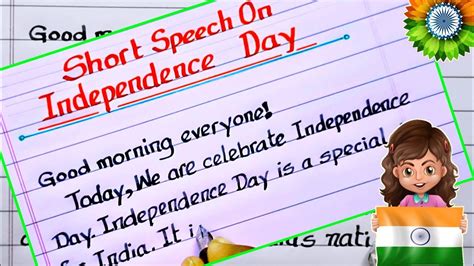 Good m
Short Speech On
Independence Day
Good morning everyone!
Today, We are celebrate Independence
Day. Independence Day is a special
India. It i
nati